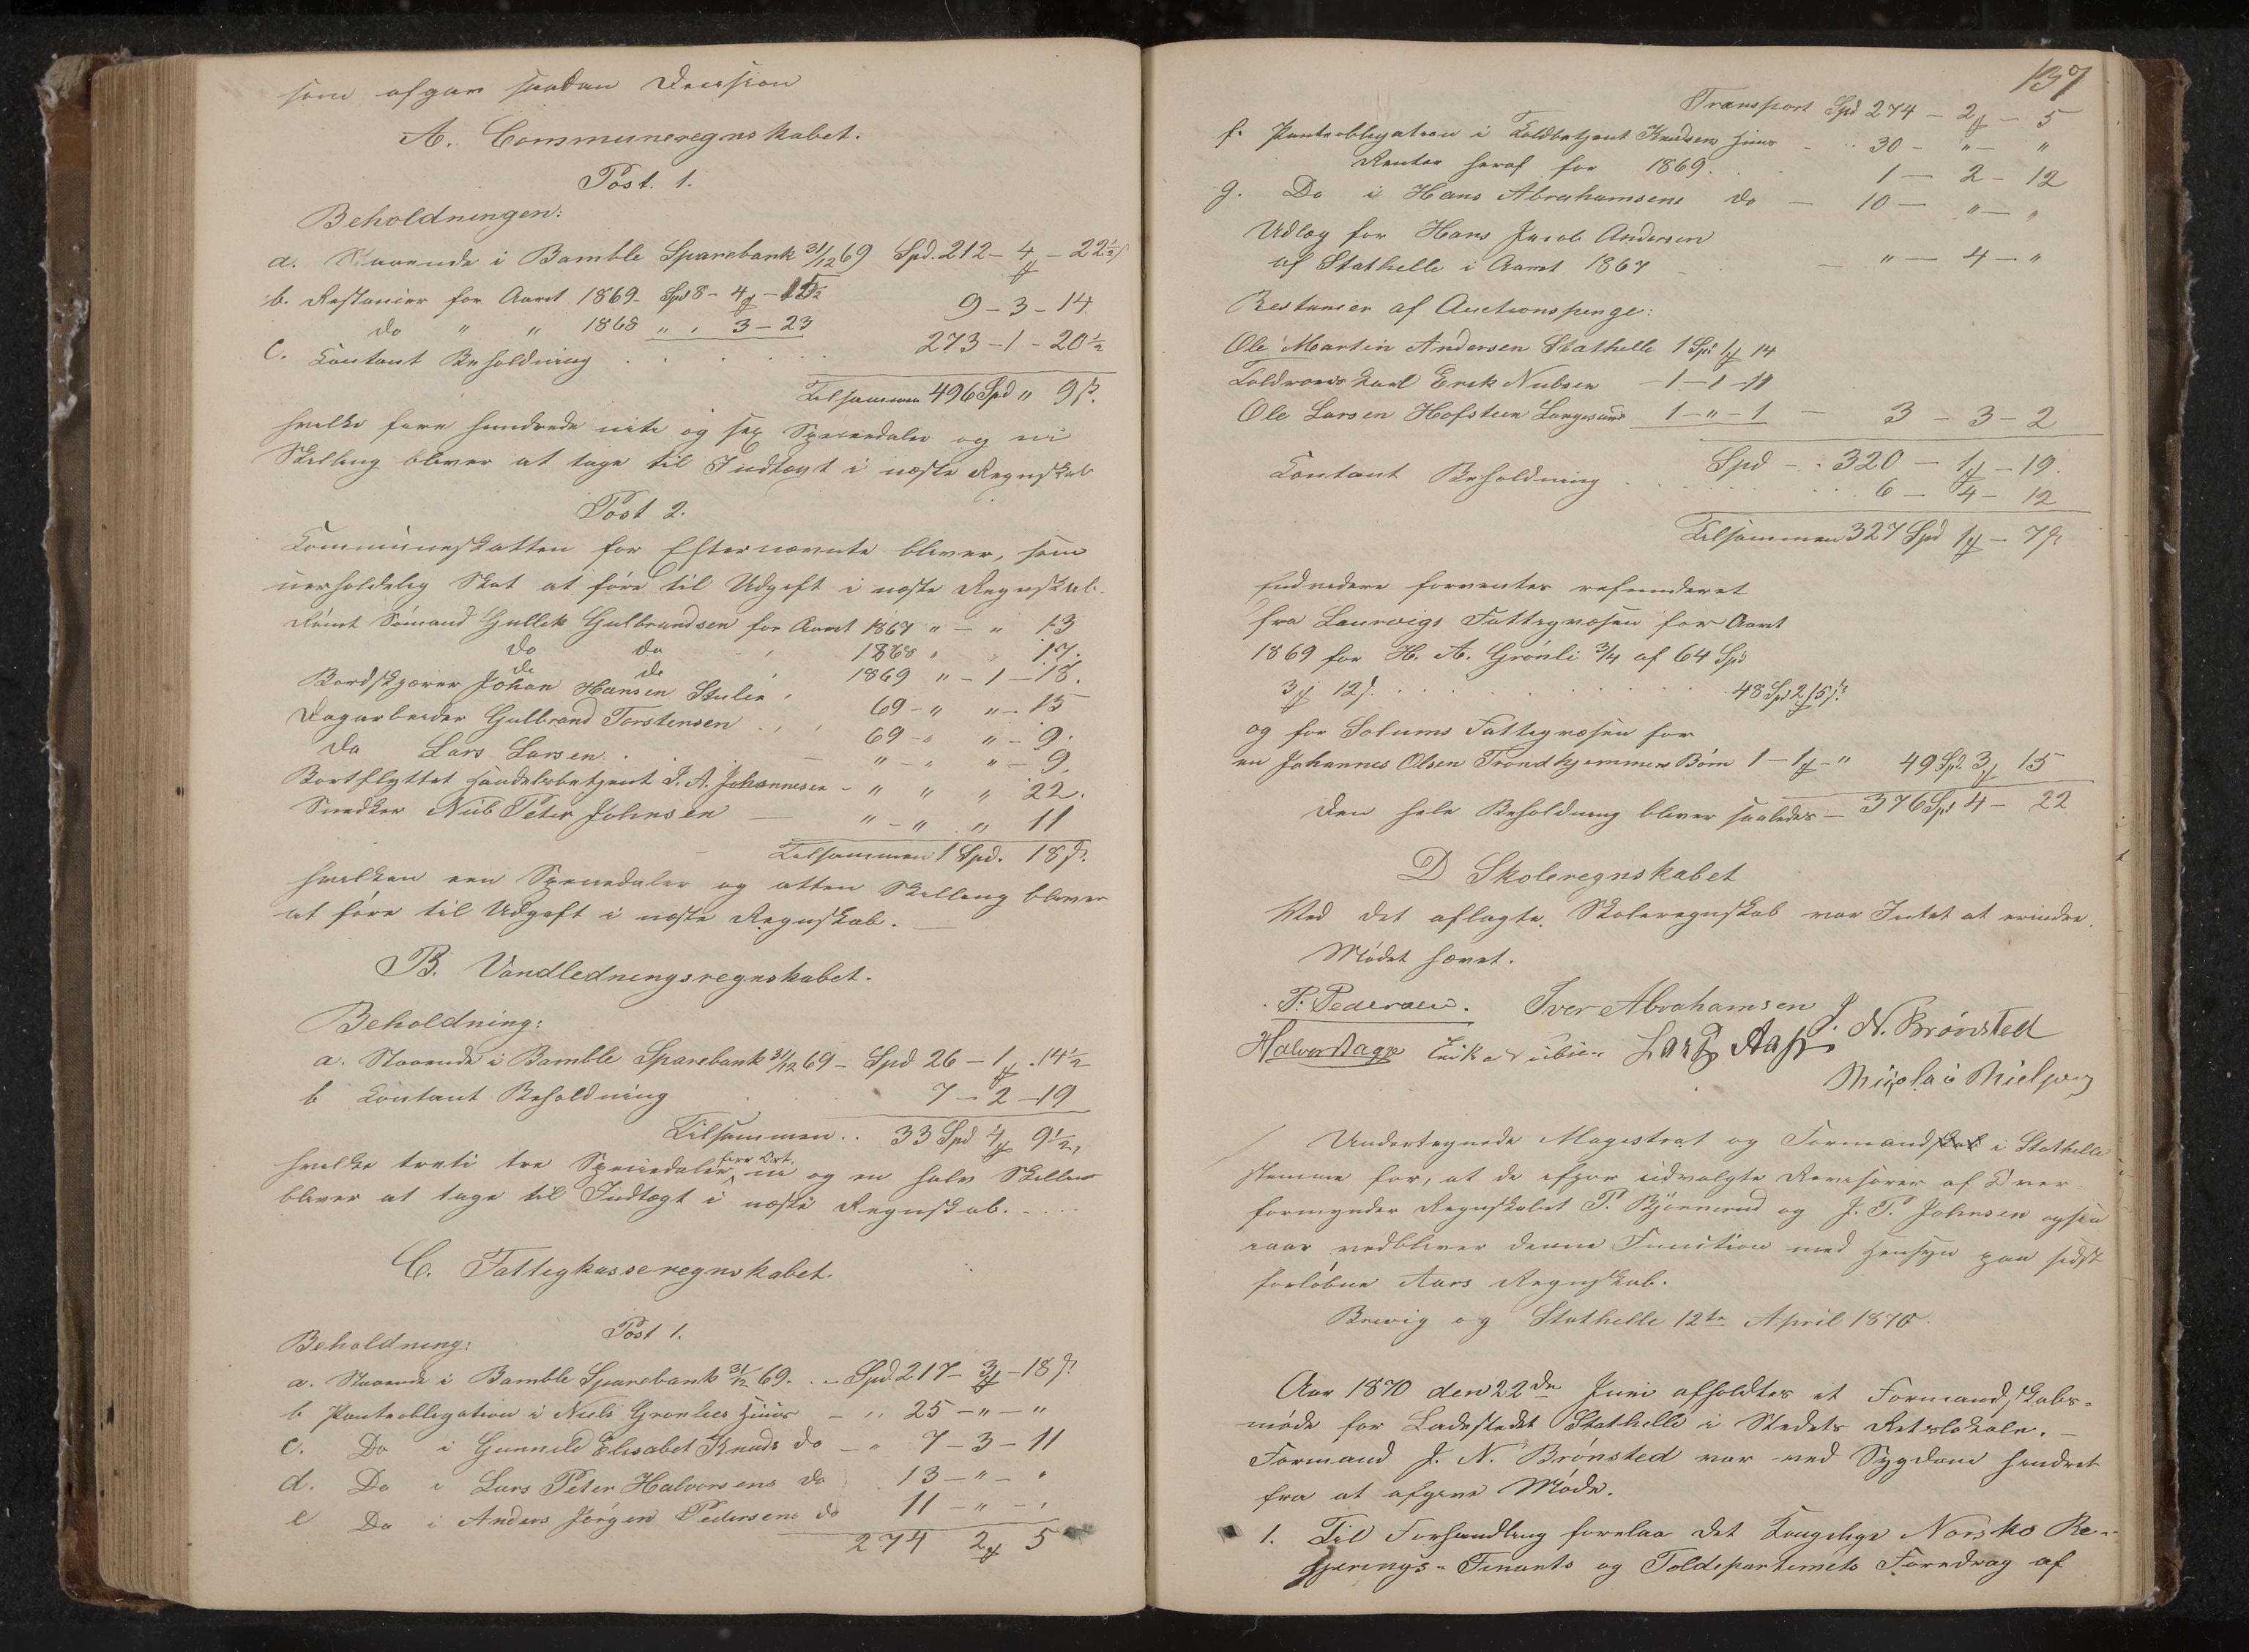 som afgav saadan Decision
A. Communeregnskabet.
Post. 1.
Beholdningen:
a. Staaende i Bamble Sparebank 31/12 69 Spd. 212 - 4 - 22½
b. Restancer for Aaret 1869 - Spd 8 - 4 - 15
do " " 1868 " " 3 - 23 9 - 3 - 14
c. Contant Beholdning 273 - 1 - 20½
Tilsammen 496 Spd " 9 s.
hvilke fire hundrede niti og sex Speciedaler og ni
Skilling bliver at tage til Indtægt i næste Regnskab
Post 2.
Kommuneskatten for Efternævnte bliver, som
uerholdelig Skat at føre til Udgift i næste Regnskab.
Rømt Sømand Gullek Gulbrandsen for Aaret 1867 " - " 13
do do 1868 " " 17.
do do 1869 " - 1 - 18.
Bordskjærer Johan Hansen Stulen 69 - " " - 15
Dagarbeider Gulbrand Torstensen 69 - " " - 9.
do Lars Larsen " - " " - 9.
Bortflyttet Handelsbetjent J. A. Johannesen - " " " 22.
Snedker Nils Peter Johnsen " - " " 11
Tilsammen 1 Spd. 18 s.
hvilken een Speciedaler og atten Skilling bliver
at føre til Udgift i næste Regnskab.
B. Vandledningsregnskabet.
Beholdning:
a. Staaende i Bamble Sparebank 31/12 69 - Spd 26 - 1 - 14½
b Contant Beholdning 7 - 2 - 19
Tilsammen .. 33 Spd 4 9½
hvilke treti tre Speciedaler fire Ort ni og en halv Skilling
bliver at tage til Indtægt i næste Regnskab.
C. Fattigkasseregnskabet.
Post 1.
Beholdning:
a. Staaende i Bamble Sparebank 31/12 69. - Spd. 217 - 3 - 18 s.
b Panteobligation i Niels Gronlies Huus - " 25 - " - "
c. Do i Gunnild Elisabet Knuds do - " 7 - 3 - 11
d. Do i Lars Peter Halvorsens do 13 - " - "
e Do i Anders Jørgen Pedersens do 11 - " - "
274 2 5
137
Transport Spd 274 - 2 - 5
f. Panteobligation i Toldbetjent Knudsens Huus - 30 - " - "
Renter heraf for 1869. 1 - 2 - 12
g. Do i Hans Abrahamsens do - 10 - " - "
Udlæg for Hans Jacob Andersen
af Stathelle i Aaret 1867 - " - 4 - "
Restancer af Auctionspenge:
Ole Martin Andersen Stathelle 1 Spd 1 14
Toldroerskarl Erik Nielsen - 1 - 1 - 11
Ole Larsen Hofsteen Langesund 1 - " - 1 - 3 - 3 - 2
Spd - 320 - 1 - 19.
Contant Beholdning 6 - 4 - 12
Tilsammen 327 Spd 1 - 7 s.
Endvidere forventes refunderet
fra Laurvigs Fattigvæsen for Aaret
1869 for H. A. Grønli 3/4 af 64 Spd
3 12 s. 48 Spd 2 15 s.
og for Solums Fattigvæsen for
en Johannes Olsen Trondhjemmens Børn 1 - 1 - " 49 Sp. 3 15
Den hele Beholdning bliver saaledes - 376 Spd 4 - 22
D Skoleregnskabet
Ved det aflagte Skoleregnskab var Intet at erindre.
Mødet hævet.
P. Pedersen. Iver Abrahamsen J. N. Brønsted
Halvor Aage Erik Nielsen Lars Aas
Nikolai Nielsen
Undertegnede Magistrat og Formandskab i Stathelle
stemme for, at de ifjor udvalgte Revisorer af Over-
formynder Regnskabet P. Bjønnerud og J. P. Johnsen ogsaa
iaar vedbliver denne Function med Hensyn paa sidst
forløbne Aars Regnskab.
Brevig og Stathelle 12te April 1870.
Aar 1870 den 22de Juni afholdtes et Formandskabs-
møde for Ladestedet Stathelle i Stedets Retslokale. -
Formand J. N. Brønsted var ved Sygdom hindret
fra at afgive Møde.
1. Til Forhandling forelaa det Kongelige Norske Re-
gjerings- Finants og Tolddepartements Foredrag af